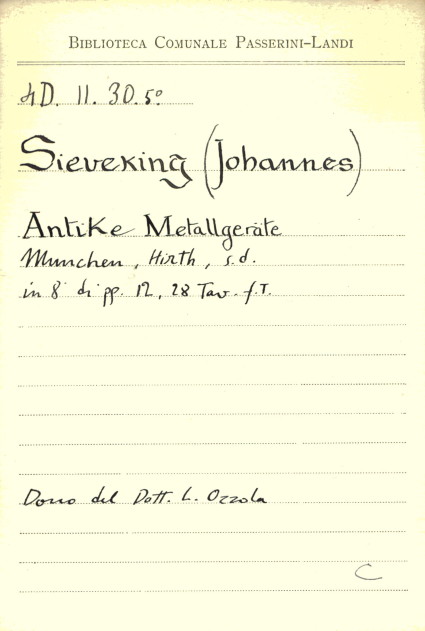 BIBLIOTECA COMUNALE PASSERINI-LANDI
4D. 11. 30.5º
Sieveking (Johannes)
Antike Metallgeräte
Munchen, Hirth, s.d.
in 8° di pp. 12, 28 Tav. f.T.
Dono del Dott. L. Ozzola
C